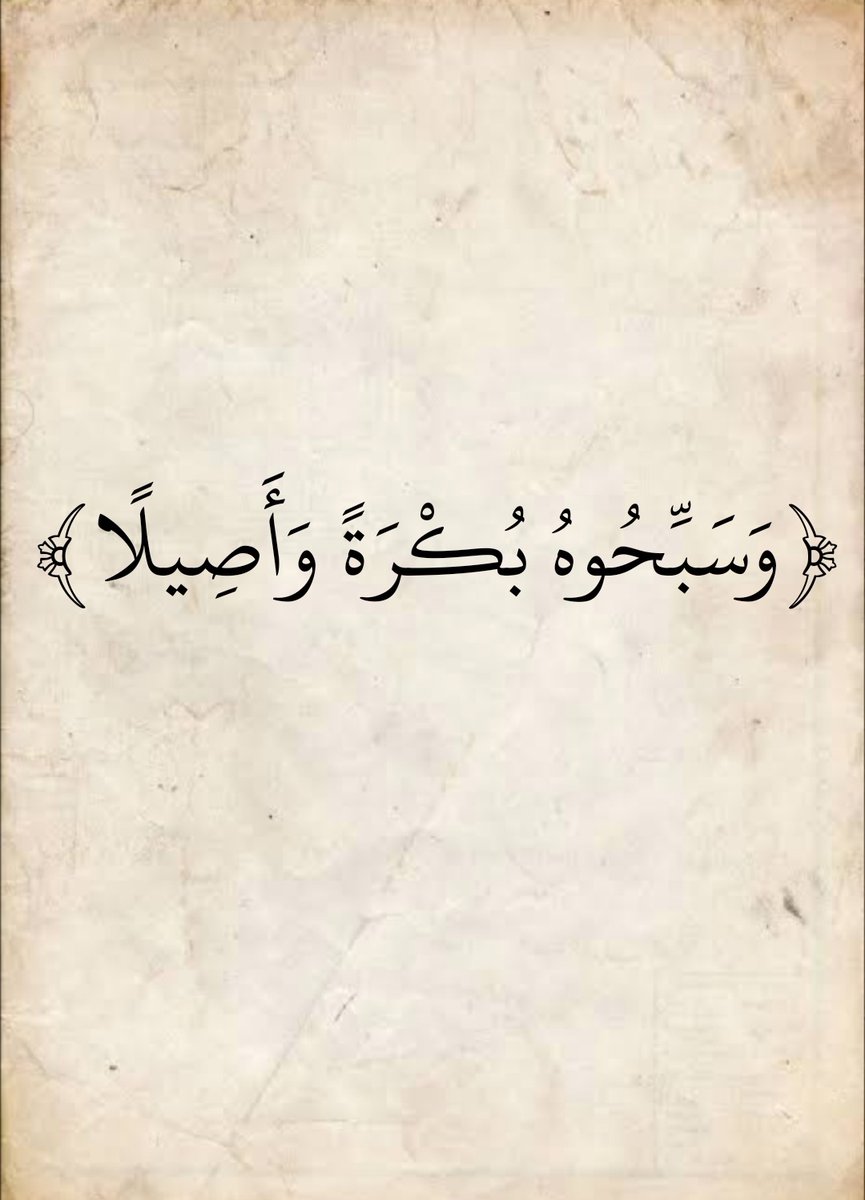 ﴿وَسَبِّحُوهُ بُكْرَةً وَأَصِيلًا﴾